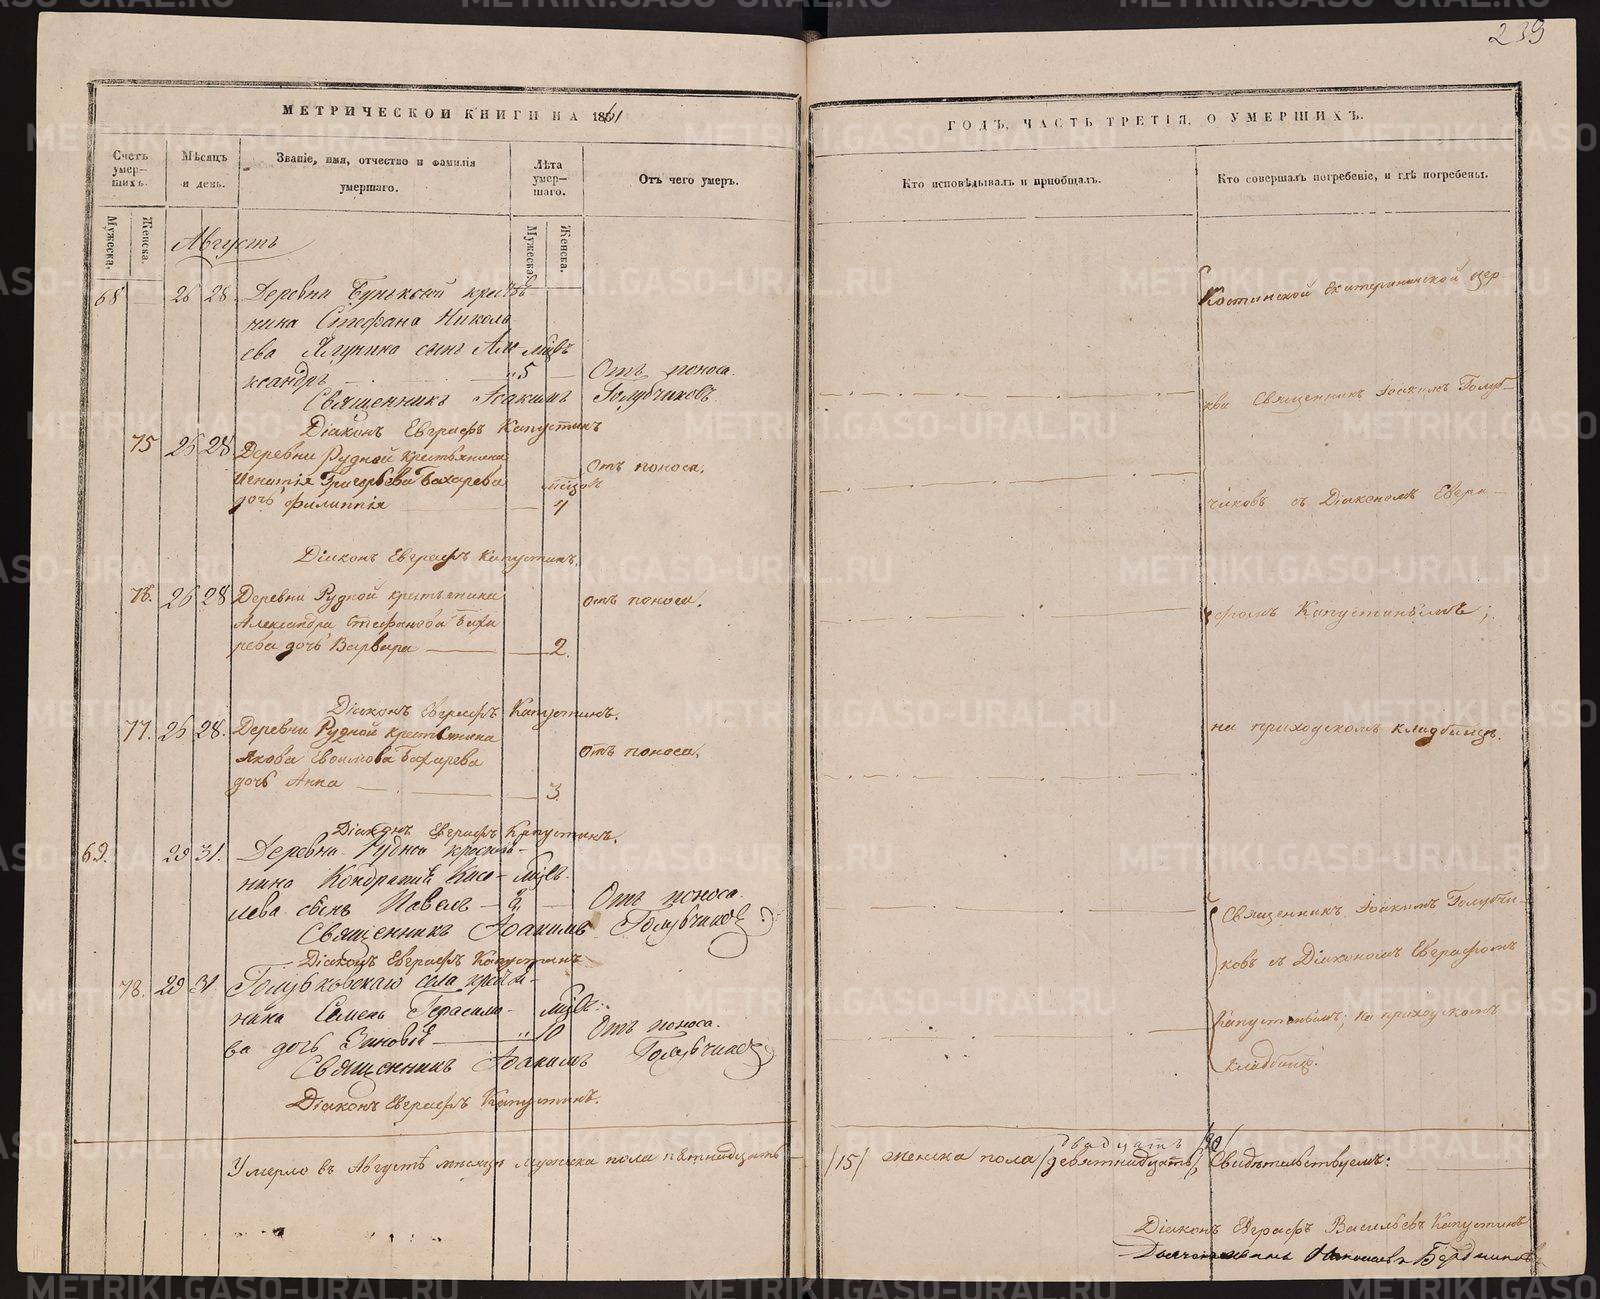 239
МЕТРИЧЕСКОЙ КНИГИ НА 1861
ГОДЪ, ЧАСТЬ ТРЕТІЯ, О УМЕРШИХЪ.
Счетъ умер—шихъ.
Мѣсяцъ и день.
Званіе, имя, отчество и фамилія умершаго.
Лѣта умер—шаго.
Отъ чего умеръ.
Кто исповѣдывалъ и пріобщалъ.
Кто совершалъ погребеніе, и гдѣ погребены.
Мужеска.
Женска.
Мужеска.
Женска.
Августъ
68 26 28 Деревни
нина Стефана Николь
ева Ягунина сынъ Але- мѣсѣ
ксандръ 5 Отъ поноса.
Священникъ Іоакимъ Голубчиковъ.
Діаконъ Евграфъ Капустинъ
75 26 28 Деревни Рудной крестьянина
Игнатія Григорьева Бахарева Отъ поноса.
дочь Филиппія 7
Діаконъ Евграфъ Капустинъ.
76. 26 28 Деревни Рудной крестьянина отъ поноса.
Александра Стефанова Баха
рева дочь Варвара 2.
Діаконъ Евграфъ Капустинъ.
77. 26 28. Деревни Рудной крестьянина
Якова Бахарева отъ поноса.
дочь Анна 3.
Діаконъ Евграфъ Капустинъ.
69. 29 31. Деревни Рудной крестья-
нина Кондратія Васи-
льева сынъ Павелъ Отъ поноса.
Священникъ Іоакимъ Голубчиковъ
Діаконъ Евграфъ Капустинъ
78. 29 31 Голубковскаго села
нина Семена Герасимо-
ва дочь Зиновія 10 Отъ поноса.
Священникъ Іоакимъ Голубчиковъ
Діаконъ Евграфъ Капустинъ.
Костинской Екатерининской цер-
кви Священникъ Іоакимъ Голуб-
чиковъ съ Діакономъ Евгра-
фомъ Капустинымъ;
на приходскомъ кладбищѣ.
Священникъ Іоакимъ Голубчи-
ковъ съ Діакономъ Евграфомъ
Капустинымъ; на приходскомъ
кладбищѣ.
Умерло въ Августѣ мѣсяцѣ мужеска пола пятнадцать /15/ женска пола /девятнадцать/ двадцать /20/ Свидѣтельствуемъ:
Діаконъ Евграфъ Васильевъ Капустинъ
METRIKI.GASO-URAL.RU